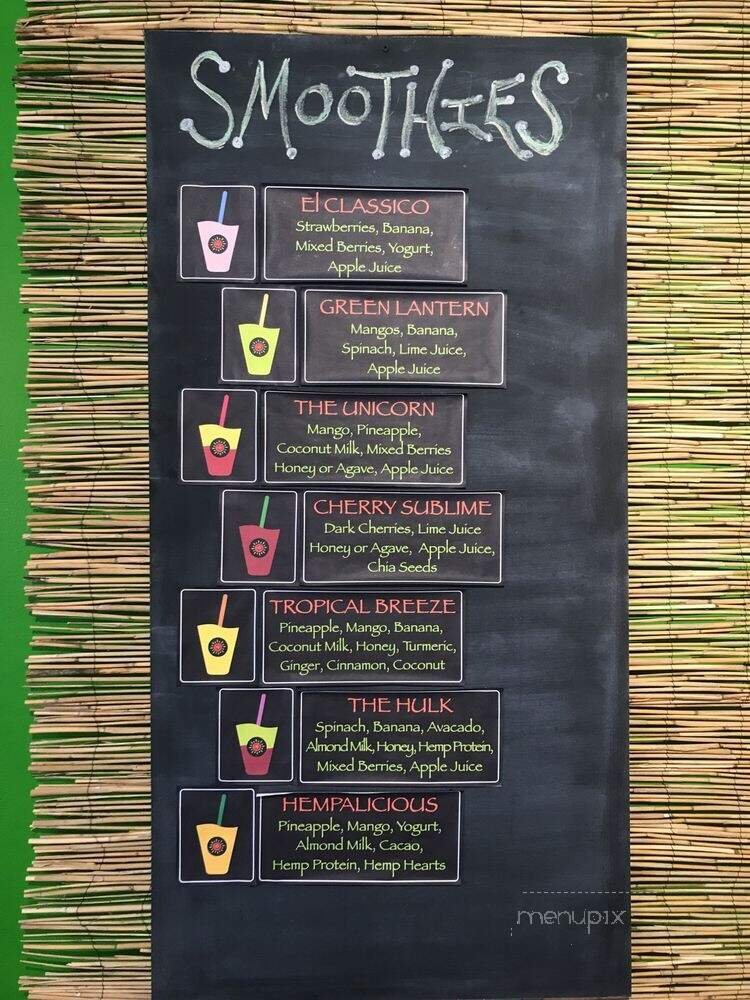 SMOOTHIES
El CLASSICO
Strawberries, Banana,
Mixed Berries, Yogurt,
Apple Juice
GREEN LANTERN
Mangos, Banana,
Spinach, Lime Juice,
Apple Juice
THE UNICORN
Mango, Pineapple,
Coconut Milk, Mixed Berries
Honey or Agave, Apple Juice
CHERRY SUBLIME
Dark Cherries, Lime Juice
Honey or Agave, Apple Juice,
Chia Seeds
TROPICAL BREEZE
Pineapple, Mango, Banana,
Coconut Milk, Honey, Turmeric,
Ginger, Cinnamon, Coconut
THE HULK
Spinach, Banana, Avacado,
Almond Milk, Honey, Hemp Protein,
Mixed Berries, Apple Juice
HEMPALICIOUS
Pineapple, Mango, Yogurt,
Almond Milk, Cacao,
Hemp Protein, Hemp Hearts
menupix